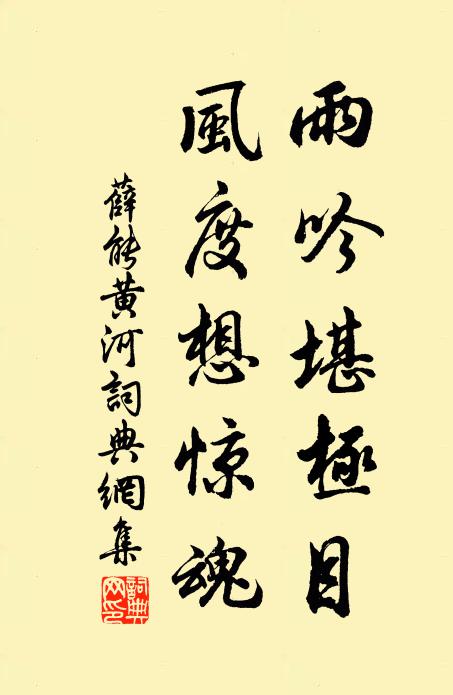 雨吟堪極目
風度想惊魂
薛能黄河詞典網集
詞典網印